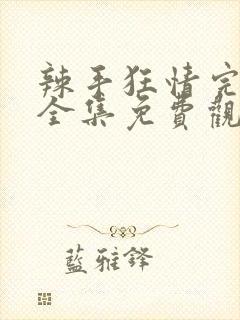 辣手狂情完
全集免費觀
藍雅鋒